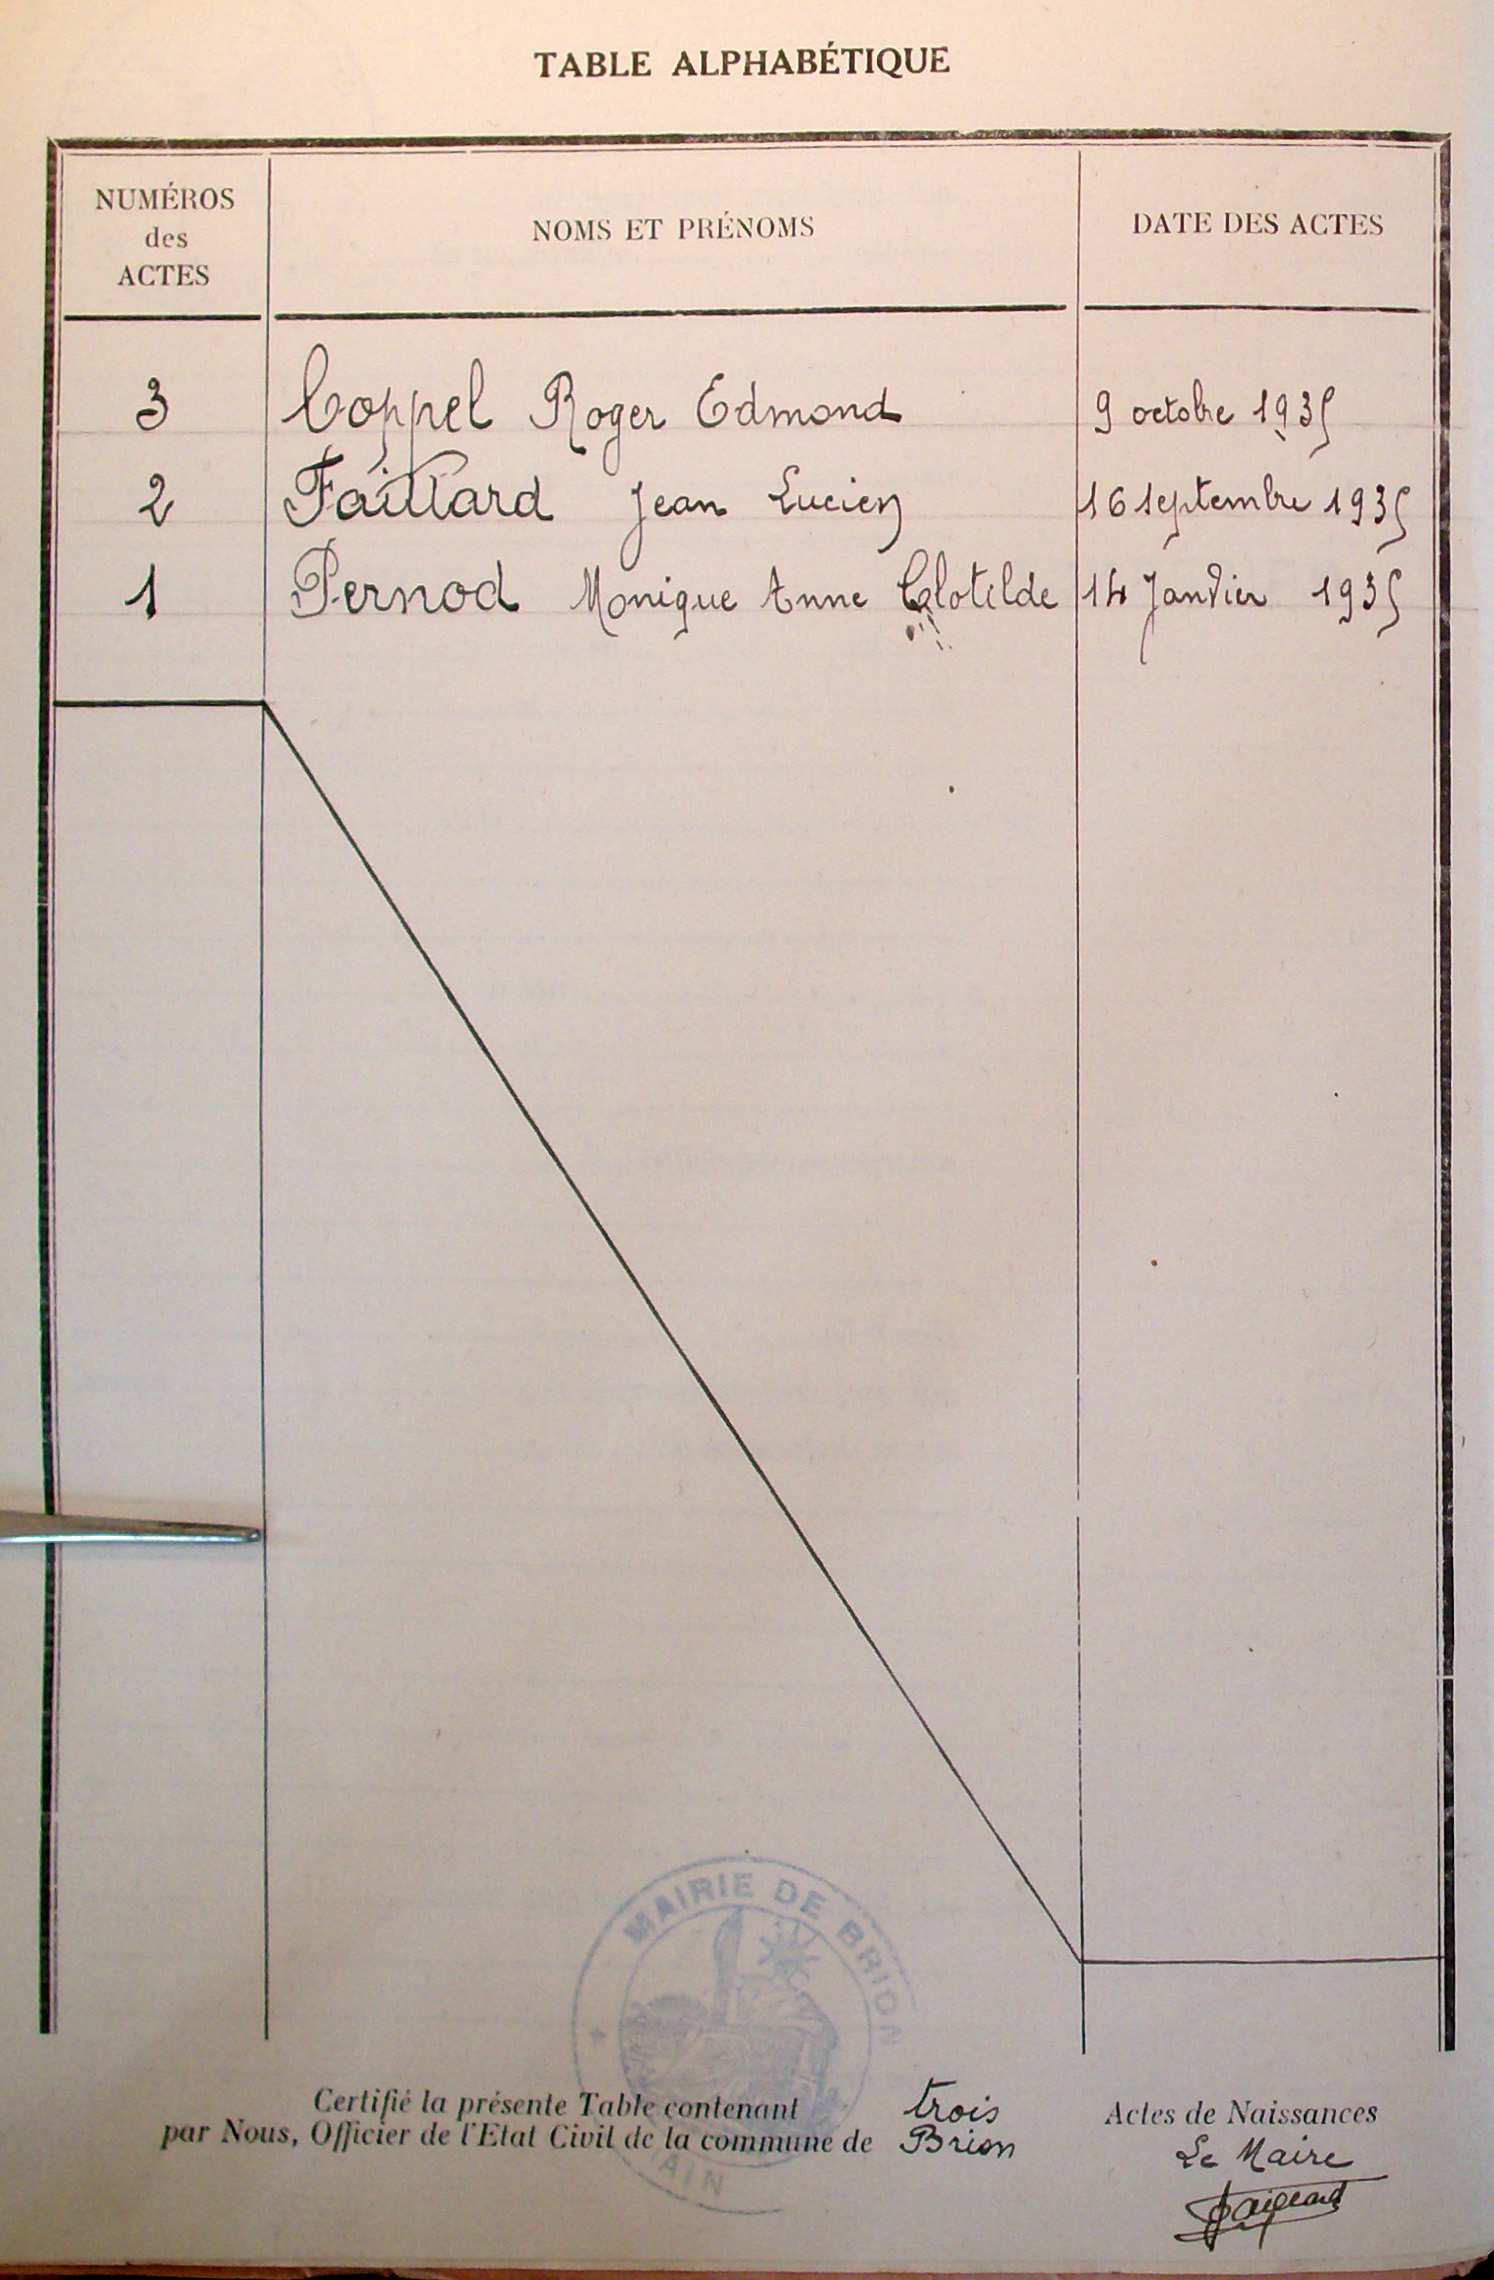 TABLE ALPHABÉTIQUE
NUMÉROS
des
ACTES
NOMS ET PRÉNOMS
DATE DES ACTES
3 Coppel Roger Edmond 9 octobre 1935
2 Faillard Jean Lucien 16 septembre 1935
1 Pernod Monique Anne Clotilde 14 Janvier 1935
MAIRIE DE BRION
AIN
Certifié la présente Table contenant trois Actes de Naissances
par Nous, Officier de l'Etat Civil de la commune de Brion
Le Maire